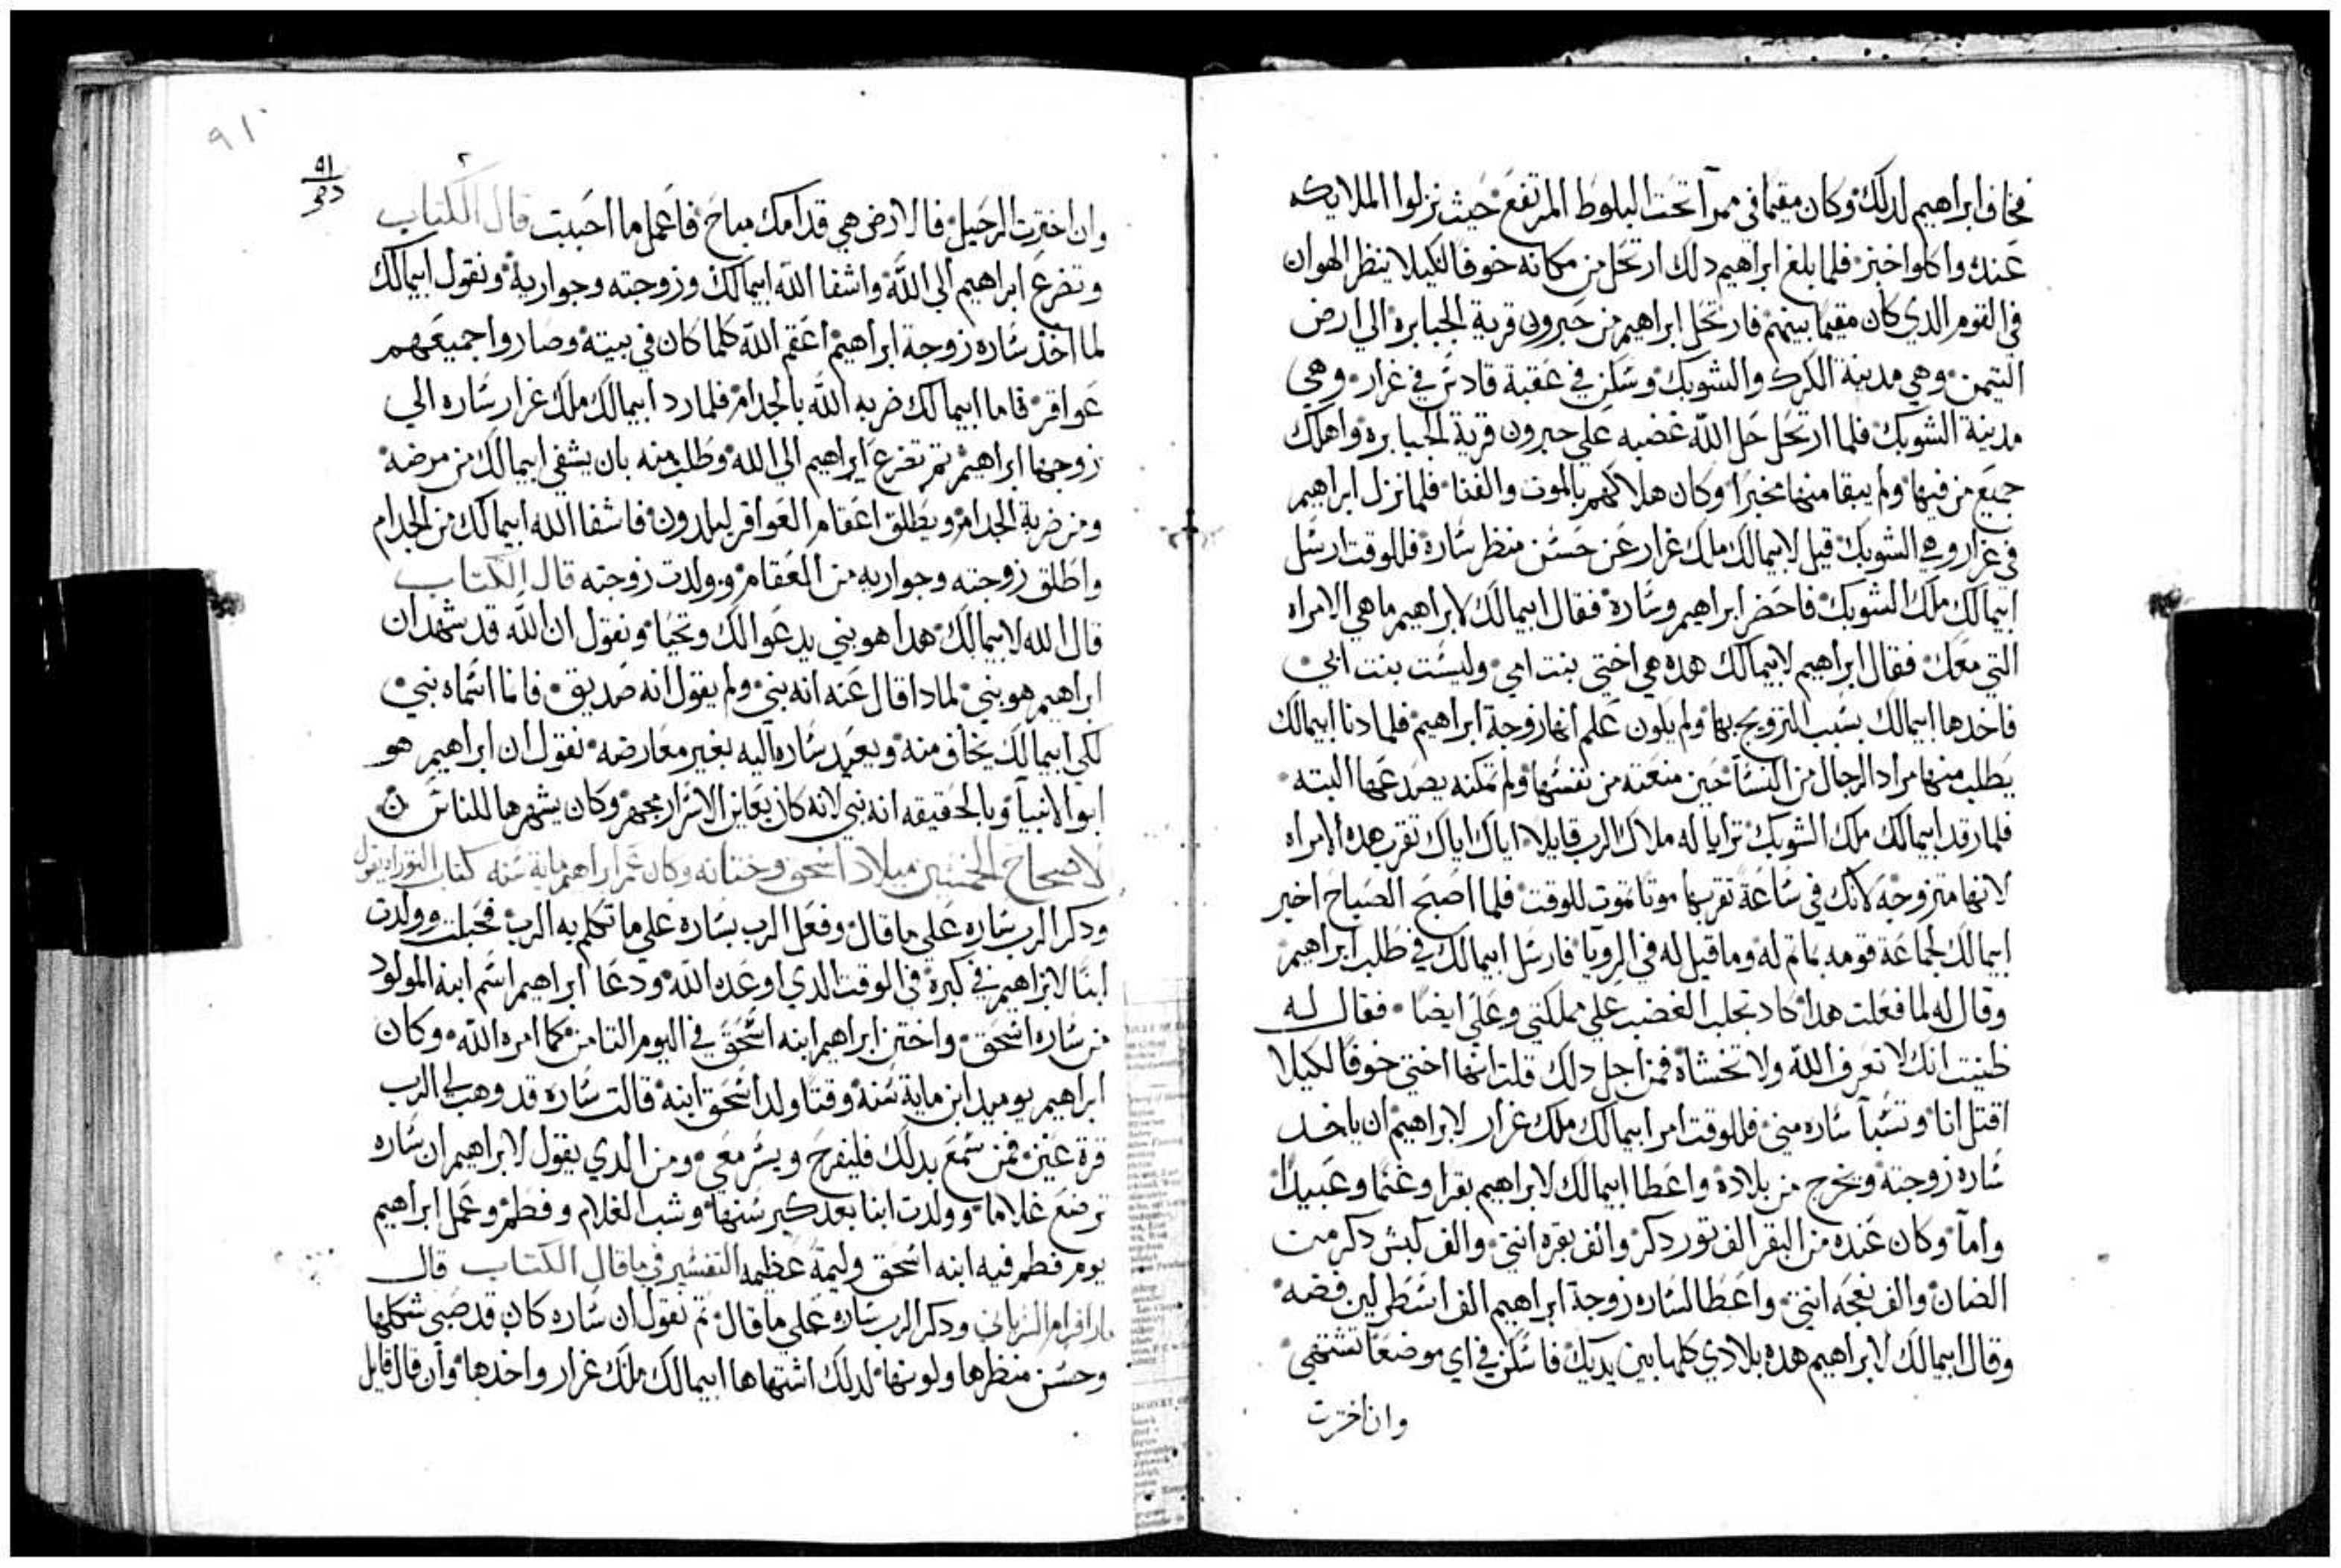 فخاف ابراهيم لدلك وكان مقيما في ممرآ تحت البلوط المرتفع حيث نزلوا الملايكه
عنده واكلوا خبز فلما بلغ ابراهيم دلك ارتحل من مكانه خوفا لكيلا ينظر الهوان
في القوم الدي كان مقيما بينهم فارتحل ابراهيم من حبرون قرية الجبابرة الي ارض
التيمن وهي مدينة الكرك والشوبك وسكن في عقبة قادس في غرار وهي
مدينة الشوبك فلما ارتحل حل الله غضبه علي حبرون قرية الجبابرة واهلك
جميع من فيها ولم يبقا منها مخبرا وكان هلاكهم بالموت والفنا فلما نزل ابراهيم
في غرار وهي الشوبك قيل لابيمالك ملك غرار عن حسن منظر سارة فللوقت ارسل
ابيمالك ملك الشوبك فاحضر ابراهيم وسارة فقال ابيمالك لابراهيم ما هي الامراه
التي معك فقال ابراهيم لابيمالك هده هي اختي بنت امي وليست بنت ابي
فاخدها ابيمالك بسبب التزويج بها ولم يكون علم انها زوجة ابراهيم فلما دنا ابيمالك
يطلب منها مراد الرجال من النسآ حين منعته من نفسها ولم تمكنه يصمد عمها البته
فلما رقد ابيمالك ملك الشوبك ترايا له ملاك الرب قايلا اياك اياك تقرب هده الامراه
لانها متزوجه لانك في ساعة تقربها موتا تموت للوقت فلما اصبح الصباح اخبر
ابيمالك لجماعة قومه بما تم له وما قيل له في الرويا فارسل ابيمالك في طلب ابراهيم
وقال له لما فعلت هدا كاد تجلب الغضب علي مملكتي وعلي ايضا فقال له
ظنيت انك لا تعرف الله ولا تخشاه فمن اجل دلك قلت انها اختي خوفا لكيلا
اقتل انا وتسبآ ساره مني فللوقت امر ابيمالك ملك غرار لابراهيم ان ياخد
ساره زوجته ويخرج من بلاده واعطا ابيمالك لابراهيم بقرا وغنما وعبيدا
وامآ وكان عنده من البقر الف تور دكر والف بقره انتي والف كبش دكر من
الضان والف نعجه انتي واعطا لساره زوجة ابراهيم الف اسطرلين فضه
وقال ابيمالك لابراهيم هده بلادي كلها بين يديك فاسكن في اي موضعا تشتهي
وان اخترت
٩١
٩١
وان اخترت الرحيل فالارض هي قدامك مباح فاعمل ما احببت قال الكتاب
وتضرع ابراهيم الي الله واشفا الله ابيمالك وزوجته وجواريه ونقول ابيمالك
لما اخد ساره زوجة ابراهيم اعقم الله كلما كان في بيته وصاروا جميعهم
عواقر فاما ابيمالك ضربه الله بالجدام فلما رد ابيمالك ملك غرار ساره الي
زوجها ابراهيم تم تضرع ابراهيم الي الله وطلب منه بان يشفي ابيمالك من مرضه
ومن ضربة الجدام ويطلق اعقام العواقر ليلدون فاشفا الله ابيمالك من الجدام
واطلق زوجته وجواريه من العقام وولدت زوجته قال الكتاب
قال الله لابيمالك هدا هو نبي يدعو الك وتحيا ونقول ان الله قد شهد ان
ابراهيم هو نبي لمادا قال عنه انه نبي ولم يقول انه صديق فانما اسماه نبي
لكي ابيمالك يخاف منه ويعيد ساره اليه بغير معارضه نقول ان ابراهيم هو
ابو الانبيآ وبالحقيقه انه نبي لانه كان يعاين الاسرار بجهر وكان يشهرها للناس
الاصحاح الخمسين ميلاد اسحق وختانه وكان عمر ابراهيم ماية سنه كتاب التوراه يقول
ودكر الرب ساره علي ما قال وفعل الرب بساره علي ما تكلم به الرب فحبلت وولدت
ابنا لابراهيم في كبره في الوقت الدي اوعده الله ودعا ابراهيم اسم ابنه المولود
من ساره اسحق واختن ابراهيم ابنه اسحق في اليوم التامن كما امره الله وكان
ابراهيم يوميد ابن ماية سنة وقتا ولد اسحق ابنه قالت ساره قد وهب لي الرب
قرة عين فمن سمع بدلك فليفرح ويسر معي ومن الدي يقول لابراهيم ان ساره
ترضع غلاما وولدت ابنا بعد كبر سنها وشب الغلام وفطم وعمل ابراهيم
يوم فطم فيه ابنه اسحق وليمة عظيمه التفسير في ما قال الكتاب قال
مار افرام السرياني ودكر الرب ساره علي ما قال تم نقول ان ساره كان قد صبي شكلها
وحسن منظرها ولونها لدلك اشتهاها ابيمالك ملك غرار واخدها وان قال قايل